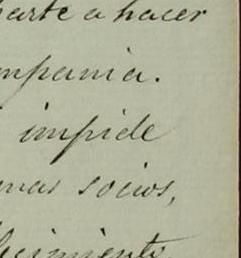 parte a hacer
mpania.
impide
mas socios,
lecimiento